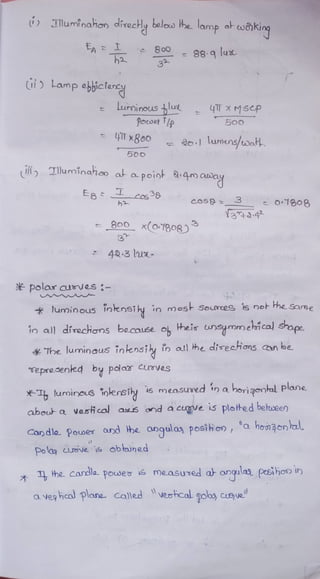 (i) Illumination directly below the lamp at working
E_A = I/h² = 800/3² = 88.9 lux
(ii) Lamp efficiency
= Luminous flux / Power i/p = 4π × MSCP / 500
= 4π × 800 / 500 = 20.1 lumens/watt.
(iii) Illumination at a point 2.4m away
E_B = I/h² cos³θ cosθ = 3/√3²+2.4² = 0.7808
= 800/3² × (0.7808)³
= 42.3 lux.
* polar curves :-
* luminous intensity in most sources is not the same
in all directions because of their unsymmetrical shape.
* The luminous intensity in all the directions can be
represented by polar curves
* If luminous intensity is measured in a horizontal plane
about a vertical axis and a curve is plotted between
Candle power and the angular position, "a horizontal
polar curve" is obtained
* If the candle power is measured at angular position in
a vertical plane called "vertical polar curve"